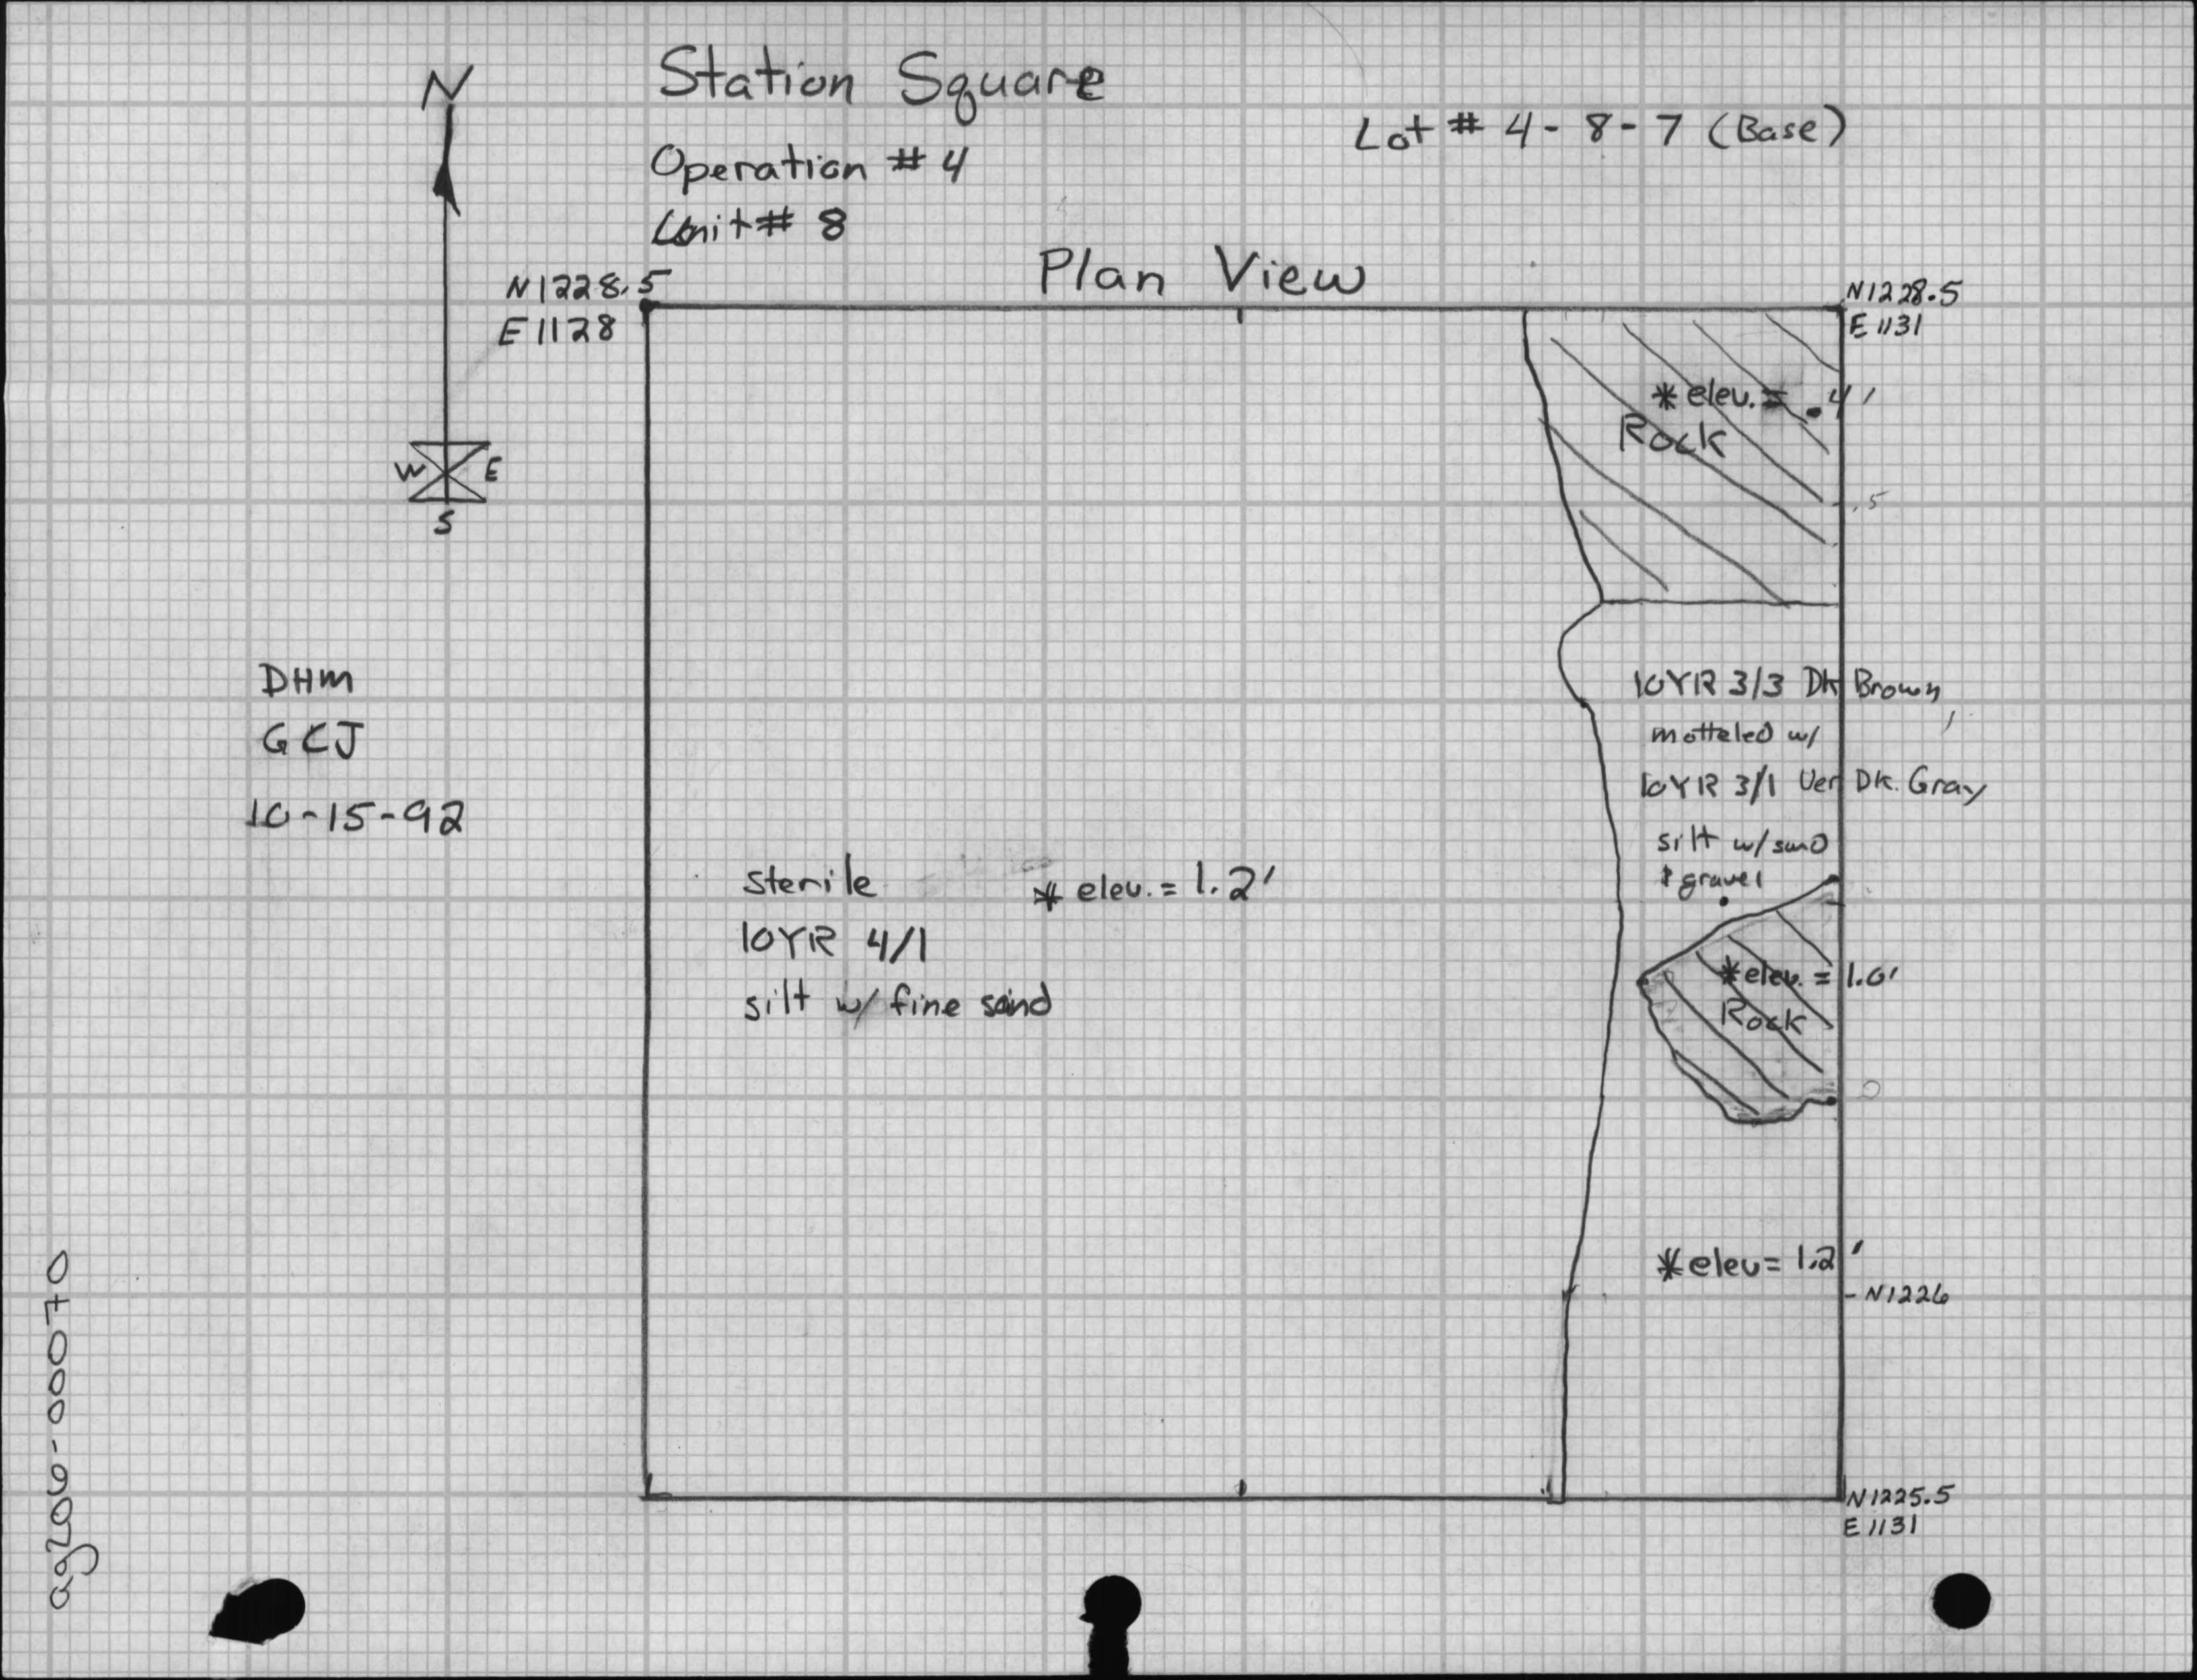 Station Square
Operation # 4
Unit # 8
Lot # 4-8-7 (Base)
N
W E
S
Plan View
N1228.5
E1128
N1228.5
E1131
* elev. = .4'
Rock
.5
DHM
GCJ
10-15-92
10YR 3/3 Dk Brown,
motteled w/
10YR 3/1 Ver Dk. Gray
silt w/ sand
& gravel
sterile
10YR 4/1
silt w/ fine sand
* elev. = 1.2'
* elev. = 1.0'
Rock
* elev = 1.2'
- N1226
N1225.5
E1131
ag20g-00070